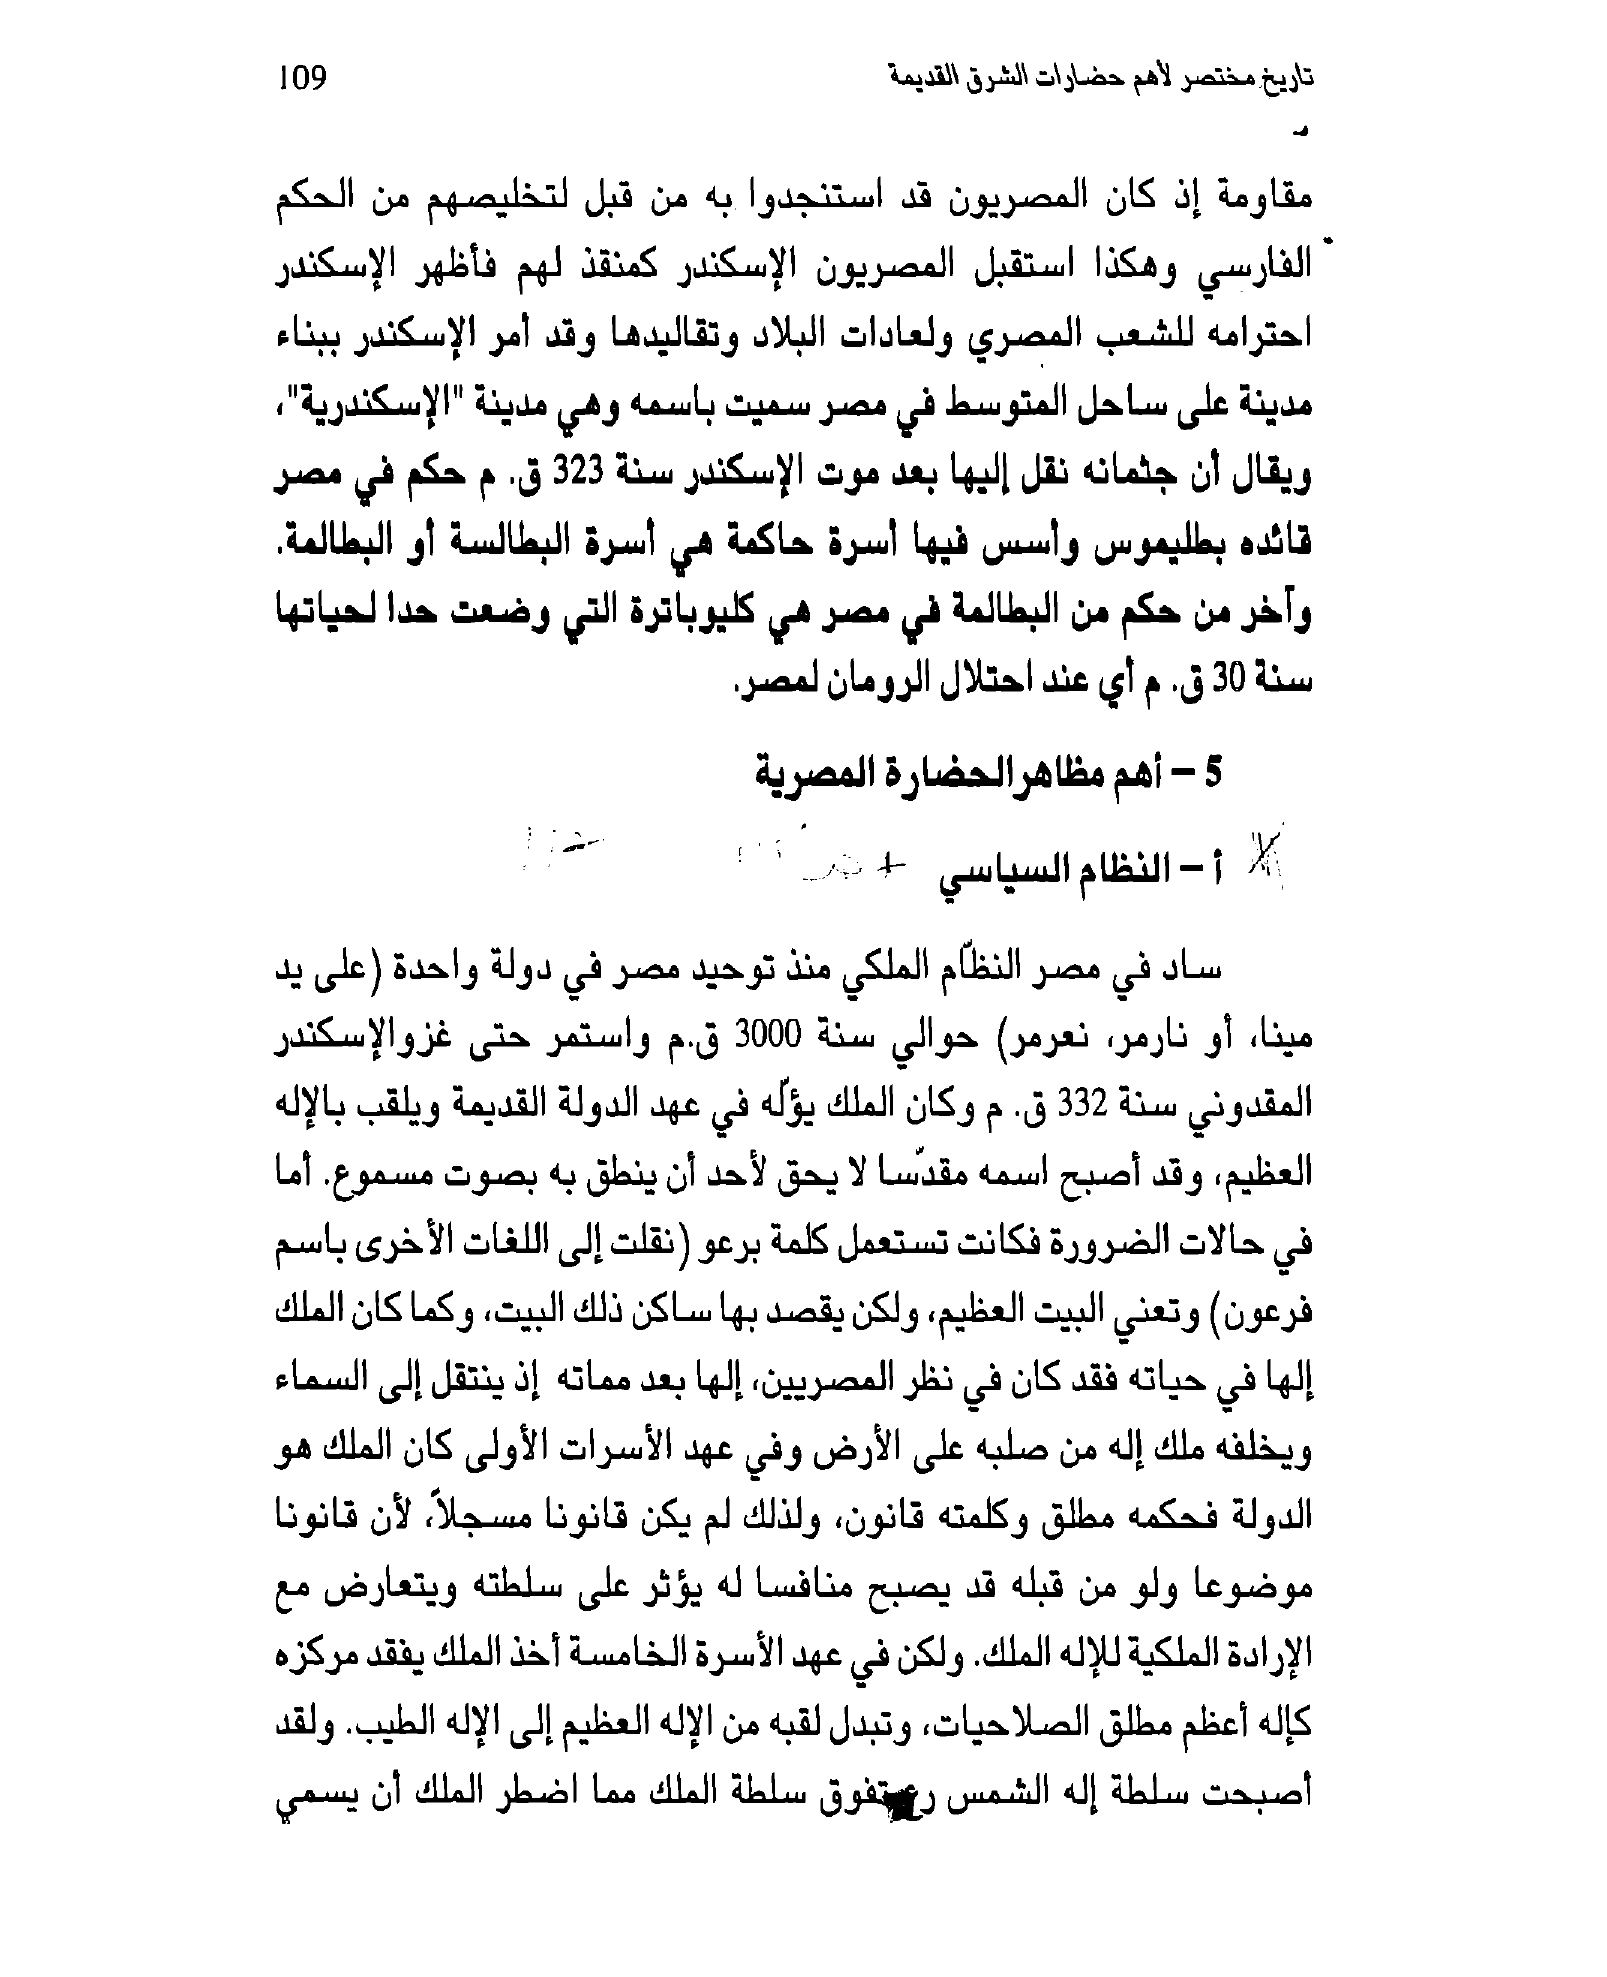 تاريخ مختصر لأهم حضارات الشرق القديمة 109
مقاومة إذ كان المصريون قد استنجدوا به من قبل لتخليصهم من الحكم
الفارسي وهكذا استقبل المصريون الإسكندر كمنقذ لهم فأظهر الإسكندر
احترامه للشعب المصري ولعادات البلاد وتقاليدها وقد أمر الإسكندر ببناء
مدينة على ساحل المتوسط في مصر سميت باسمه وهي مدينة "الإسكندرية"،
ويقال أن جثمانه نقل إليها بعد موت الإسكندر سنة 323 ق. م حكم في مصر
قائده بطليموس وأسس فيها أسرة حاكمة هي أسرة البطالسة أو البطالمة.
وآخر من حكم من البطالمة في مصر هي كليوباترة التي وضعت حدا لحياتها
سنة 30 ق. م أي عند احتلال الرومان لمصر.
5 – أهم مظاهر الحضارة المصرية
أ – النظام السياسي
ساد في مصر النظّام الملكي منذ توحيد مصر في دولة واحدة (على يد
مينا، أو نارمر، نعرمر) حوالي سنة 3000 ق.م واستمر حتى غزو الإسكندر
المقدوني سنة 332 ق. م وكان الملك يؤلّه في عهد الدولة القديمة ويلقب بالإله
العظيم، وقد أصبح اسمه مقدّسا لا يحق لأحد أن ينطق به بصوت مسموع. أما
في حالات الضرورة فكانت تستعمل كلمة برعو (نقلت إلى اللغات الأخرى باسم
فرعون) وتعني البيت العظيم، ولكن يقصد بها ساكن ذلك البيت، وكما كان الملك
إلها في حياته فقد كان في نظر المصريين، إلها بعد مماته إذ ينتقل إلى السماء
ويخلفه ملك إله من صلبه على الأرض وفي عهد الأسرات الأولى كان الملك هو
الدولة فحكمه مطلق وكلمته قانون، ولذلك لم يكن قانونا مسجلاً، لأن قانونا
موضوعا ولو من قبله قد يصبح منافسا له يؤثر على سلطته ويتعارض مع
الإرادة الملكية للإله الملك. ولكن في عهد الأسرة الخامسة أخذ الملك يفقد مركزه
كإله أعظم مطلق الصلاحيات، وتبدل لقبه من الإله العظيم إلى الإله الطيب. ولقد
أصبحت سلطة إله الشمس رع تفوق سلطة الملك مما اضطر الملك أن يسمي